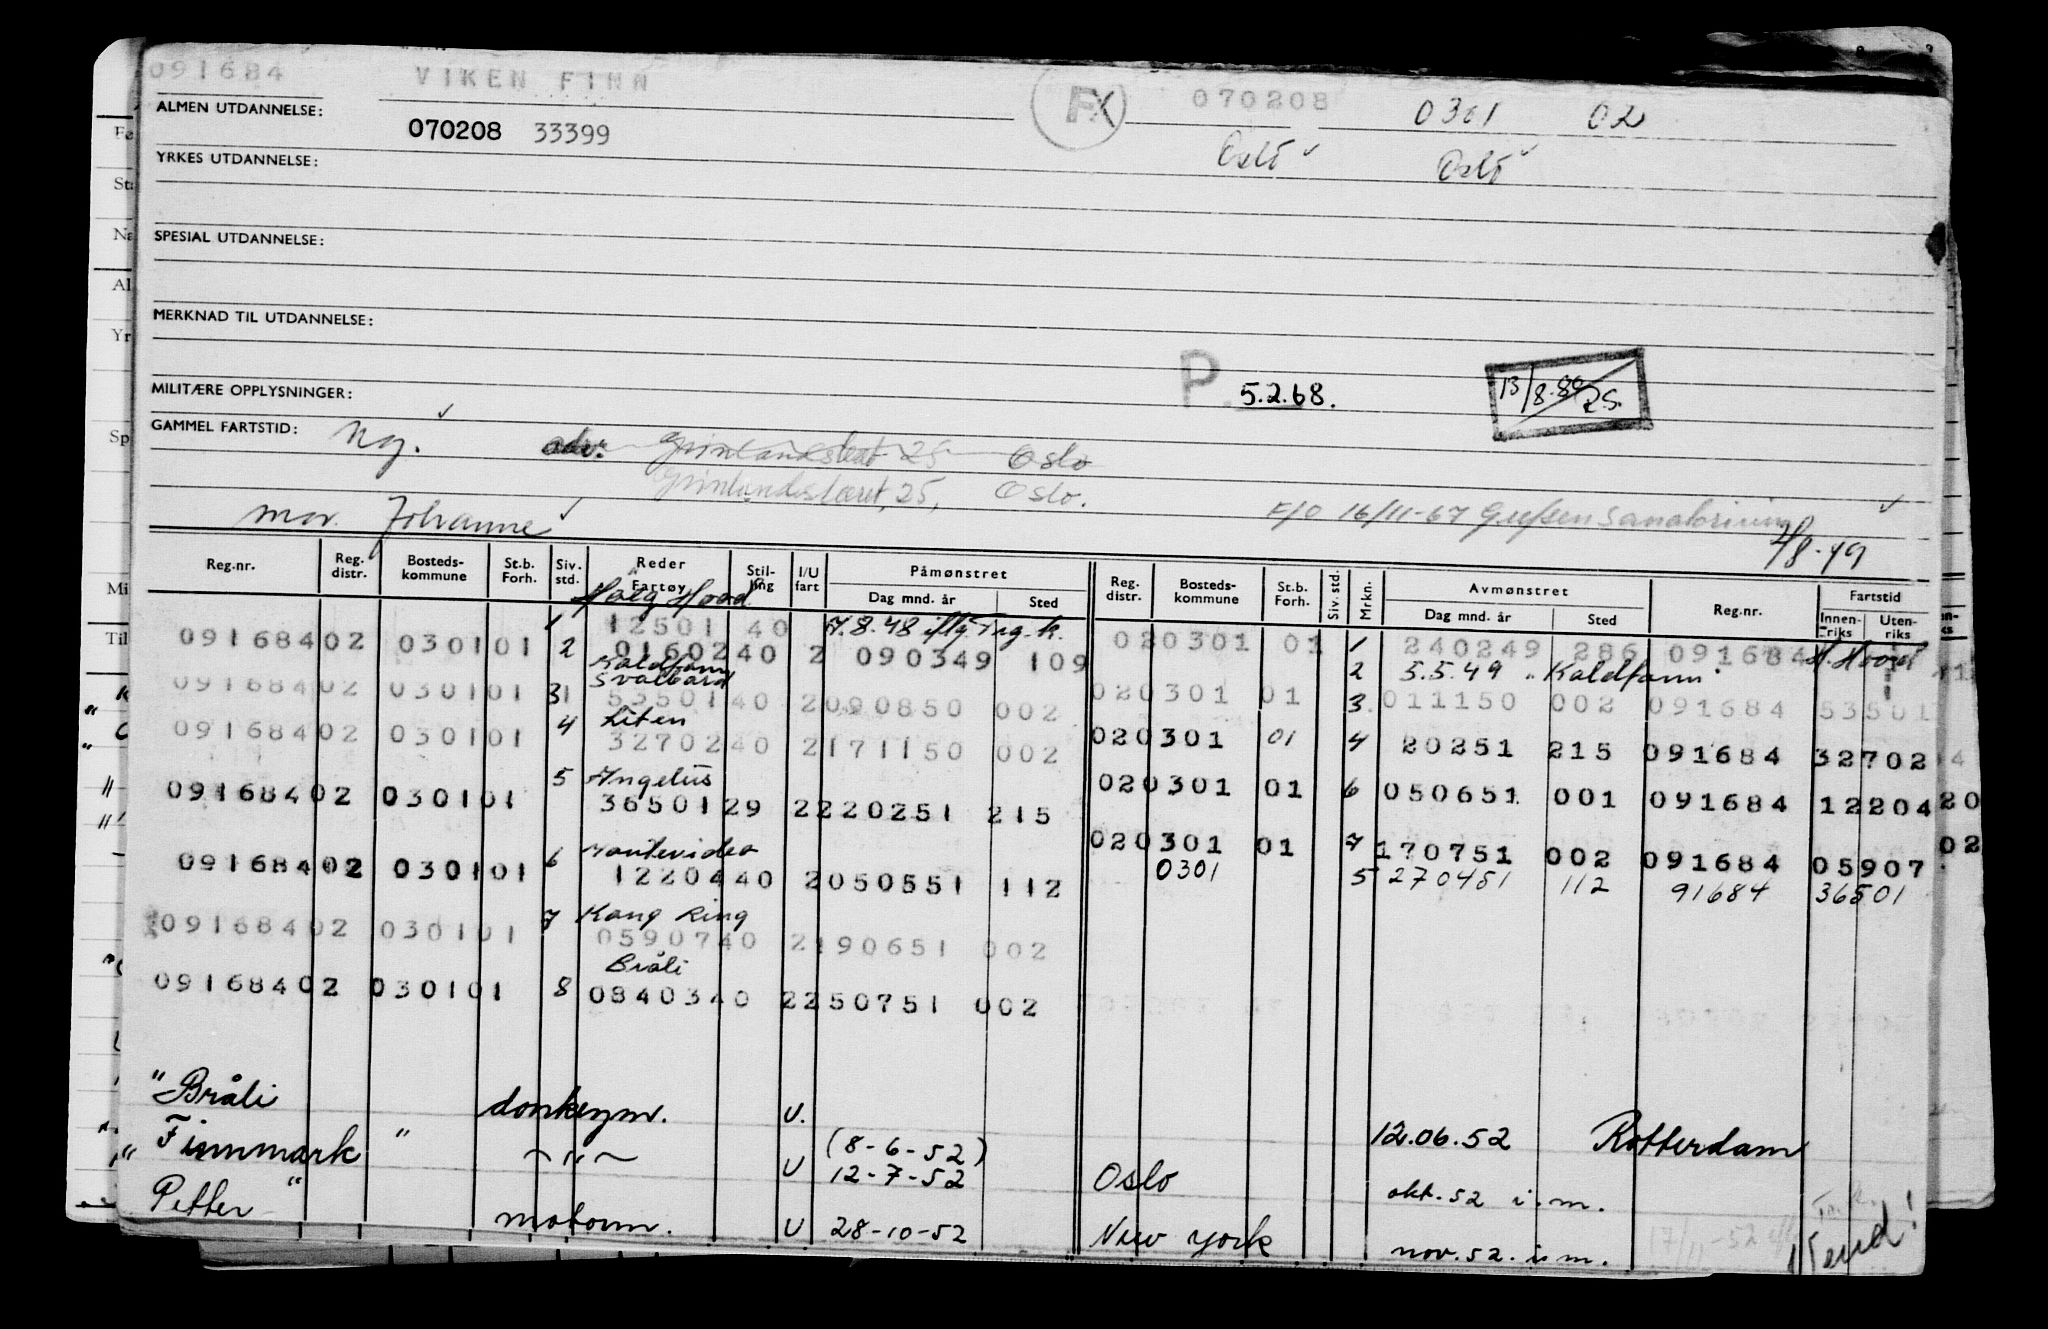 091684 VIKEN FINN FX 070208 0301 02
ALMEN UTDANNELSE:
070208 33399 Oslo Oslo
YRKES UTDANNELSE:
SPESIAL UTDANNELSE:
MERKNAD TIL UTDANNELSE:
MILITÆRE OPPLYSNINGER: P. 5.2.68. 13/8.80 RS.
GAMMEL FARTSTID: Ng. adr. Grønlandsleret 25 Oslo
Grønlandsleret, 25, Oslo.
mor. Johanne F/O 16/11-67 Grefsen Sanatorium
2/8-49
Reg.nr. Reg. distr. Bosteds-kommune St.b. Forh. Siv. std. Reder Fartøy Stil-ling I/U fart Påmønstret Dag mnd. år Sted Reg. distr. Bosteds-kommune St.b. Forh. Siv. std. Mrkn. Avmønstret Dag mnd. år Sted Reg.nr. Fartstid Innen-riks Uten-riks
Høeg Hood
1 12501 40 7.8.48 iflg. Trg.k. 020301 01 1 240249 286 091684 H. Hood
091684 02 0301 01 2 01602 40 2 090349 109
Kaldfonn 2 5.5.49 "Kaldfonn"
Svalbard
091684 02 0301 01 3 53501 40 2 090850 002 020301 01 3 011150 002 091684 53501
4 Liten
091684 02 0301 01 32702 40 2 171150 002 020301 01 4 20251 215 091684 32702
5 Angelus
091684 02 0301 01 36501 29 2 220251 215 020301 01 6 050651 001 091684 12204
6 Montevideo 020301 01 7 170751 002 091684 05907
091684 02 0301 01 12204 40 2 050551 112 0301 5 270451 112 91684 36501
7 Kong Ring
091684 02 0301 01 05907 40 2 190651 002
Bråli
091684 02 0301 01 8 08403 40 2 250751 002
"Bråli donkeym. U. 12.06.52 Rotterdam
"Finnmark" - " - U (8-6-52)
12-7-52 Oslo okt. 52 i.m.
Petter" motorm. U 28-10-52 New York nov. 52. i. m.
17/11-52
Vend!